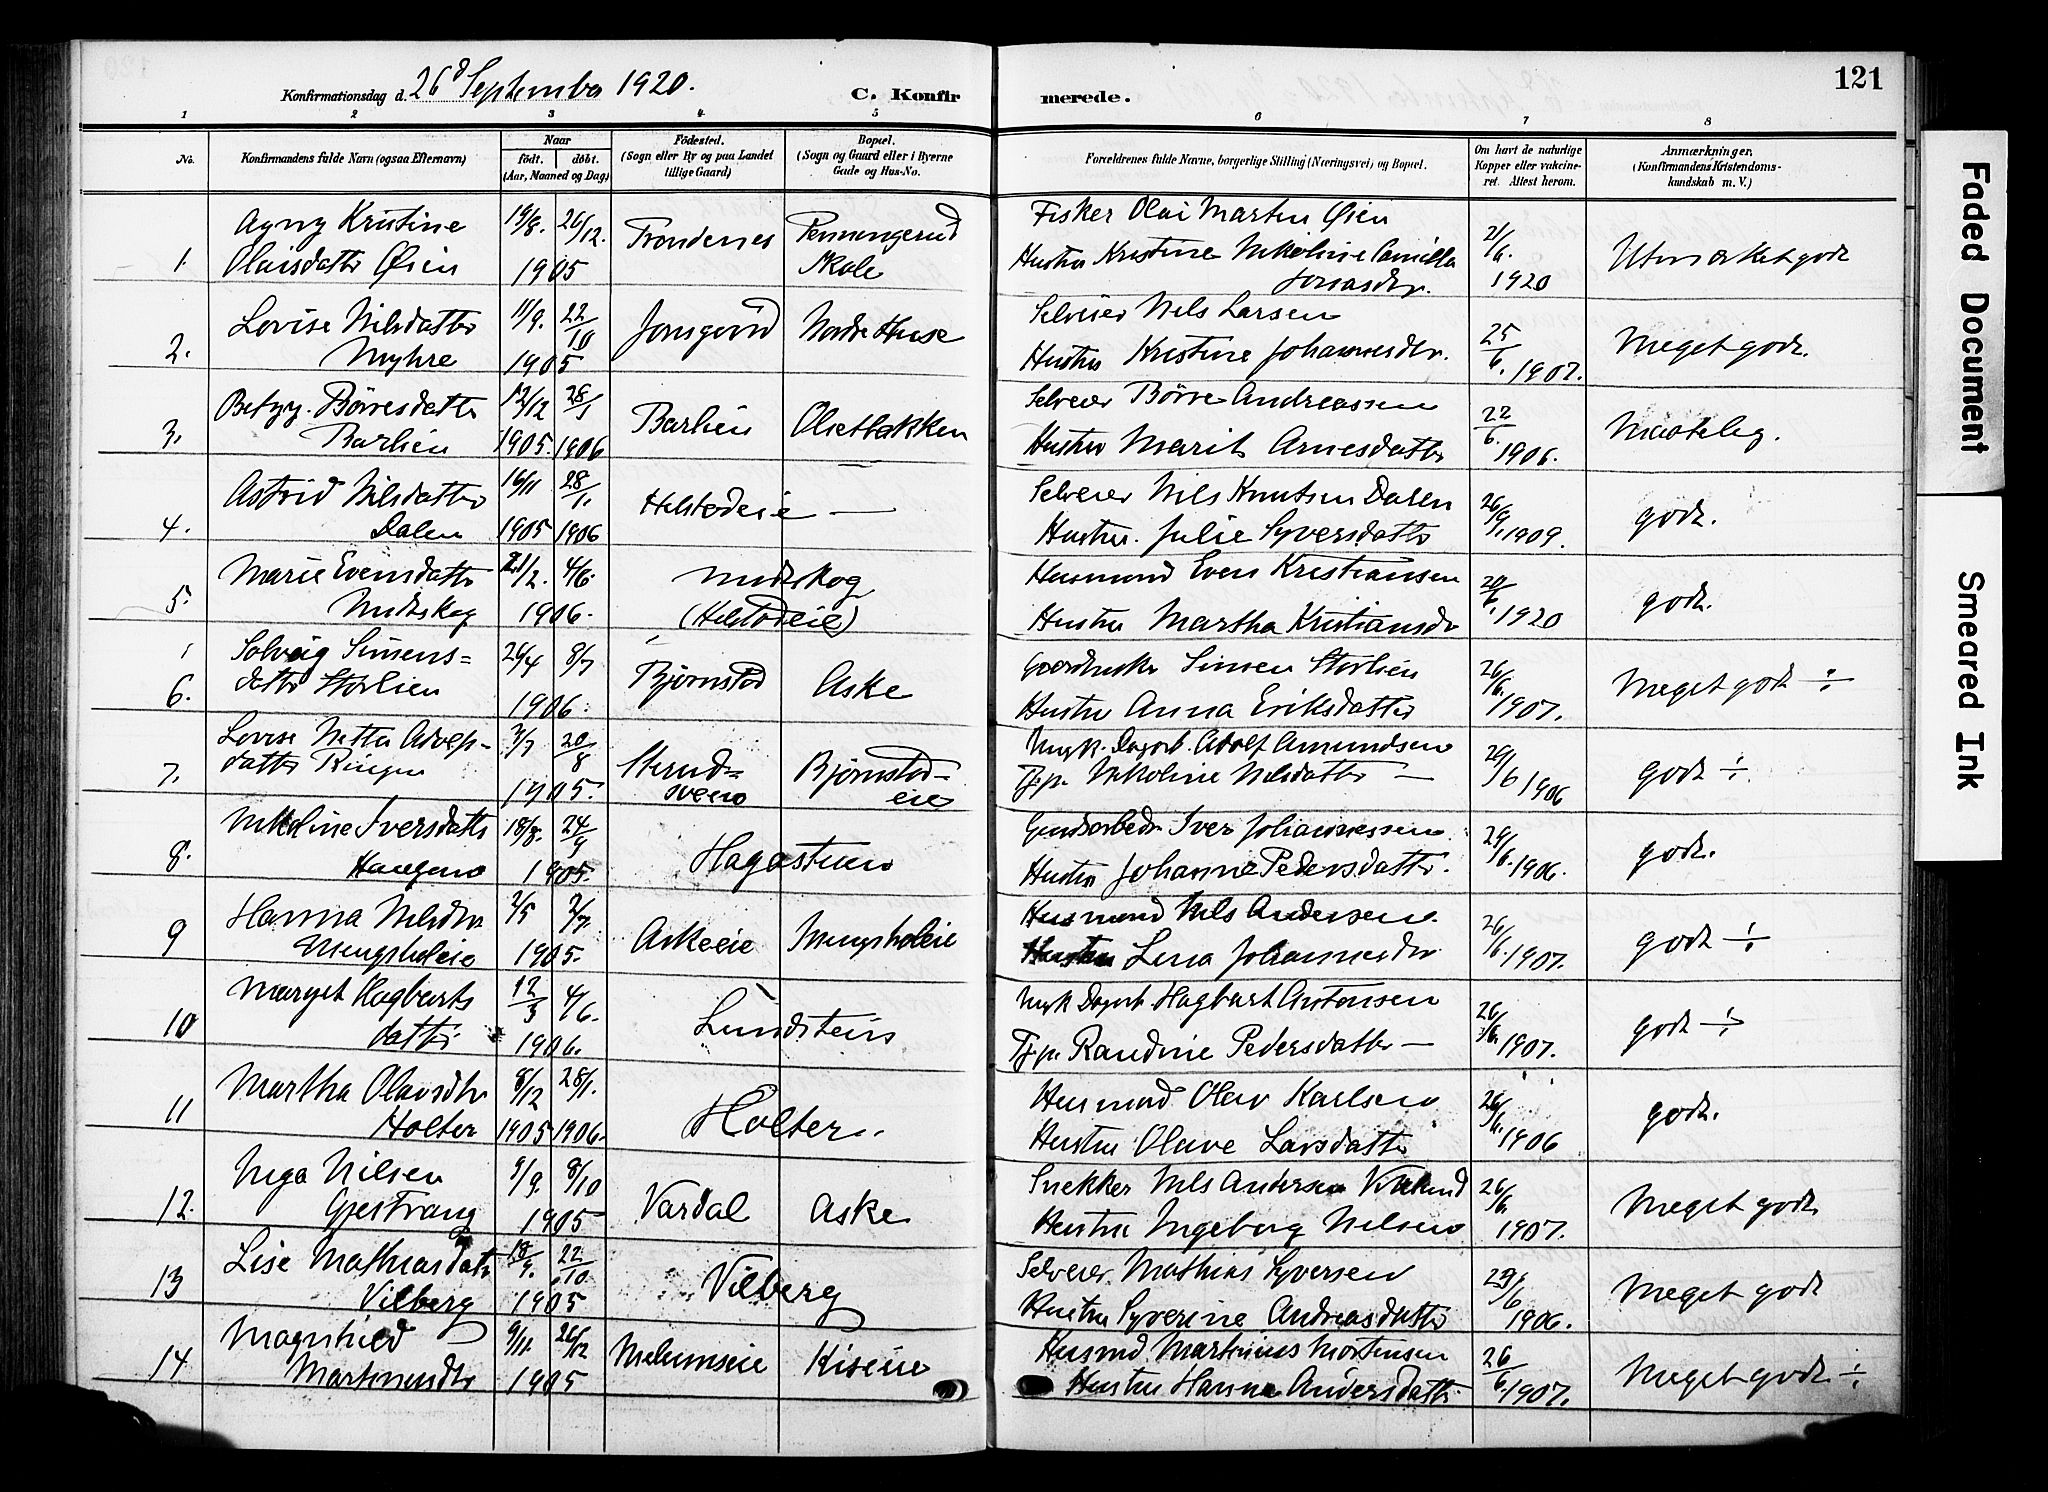 121
Konfirmationsdag d. 26d September 1920. C. Konfirmerede.
1 2 3 4 5 6 7 8
No. Konfirmandens fulde Navn (ogsaa Efternavn) Naar født. døbt. (Aar, Maaned og Dag) Födested. (Sogn eller By og paa Landet tillige Gaard) Bopæl. (Sogn og Gaard eller i Byerne Gade og Hus-No. Forældrenes fulde Navne, borgerlige Stilling (Næringsvei) og Bopæl. Om havt de naturlige Kopper eller vakcineret. Attest herom. Anmærkninger. (Konfirmandens Kristendomskundskab m. V.)
Agny Kristine 19/8. 26/12. Trondenes Fisker Olai Martin Øien 21/6.
1. Olaisdatter Øien 1905 Skole Hustru Kristine Nikoline Camilla Jonasdtr. 1920 Utmerket godt
Lovise Nilsdatter 11/9. 22/10 Nordre Huse Selveier Nils Larsen 25/6.
2. Myhre 1905 Hustru Kristine Johannesdtr. 1907. Meget godt.
Betzy Børresdatter 12/12 28/1 Barlien Olsetbakken Selveier Børre Andreassen 22/6.
3. Barlien 1905. 1906 Hustru Marit Arnesdatter 1906. Maatelig.
Astrid Nilsdatter 16/11 28/1. Helstadeie — Selveier Nils Knutsen Dalen 26/9.
4. Dalen 1905 1906 Hustru Julie Syversdatter 1909. godt.
Marie Evensdatter 21/2. 4/6. Midtskog Husmand Even Kristiansen 20/6.
5. Midtskog 1906. (Helstadeie) Hustru Martha Kristiansdtr 1920 godt.
Solveig Simens= 26/4 8/7 Bjørnstad Aske Simen Storlien 26/6.
6. datter Storlien 1906. Hustru Anna Eriksdatter 1907. Meget godt ÷
Lovise Netta Adolfs- 3/7 20/8 Bjørnstad- Ungk. Dagarb. Adolf Amundsen 29/6
7. datter Ringen 1905. eie Tjp. Nikoline Nilsdatter — 1906 godt ÷
Nikoline Iversdatter 18/8. 24/9 Hagastuen Iver Johannessen 29/6.
8. Haugen 1905. Hustru Johanne Pedersdatter. 1906. godt.
Hanna Nilsdtr 2/5 2/7. Askeeie Mengsholeie Husmand Nils Andersen 26/6.
9 Mengsholeie 1905. Hustru Lina Johannesdtr 1907. godt ÷
Margit Hagbarts 12/3 4/6. Lundstein Ungk Dagarb. Hagbart Antonsen 26/6.
10 datter 1906. Tjp. Randine Pedersdatter — 1907. godt ÷
Martha Olavsdtr 8/12 28/1. Holter Husmand Olav Karlsen 26/6.
11 Holter 1905 1906. Hustru Oluve Larsdatter 1906 godt.
Inga Nilsen 9/9. 8/10 Vardal Aske Snekker Nils Andersen 26/6.
12. Gjestvang 1905 Hustru Ingeborg Nilsen 1907. Meget godt
Lise Mathiasdatr 18/9. 22/10 Vilberg Selveier Mathias Syversen 29/6
13 Vilberg 1905 Hustru Syverine Andreasdatter 1906. Meget godt
Magnhild 9/11. 26/12 Melumseie Kiseeie Husmd Martinius Mortensen 26/6
14. Martinusdtr 1905 Hustru Hanna Andersdatter 1907. Meget godt ÷
Faded Document
Smeared Ink